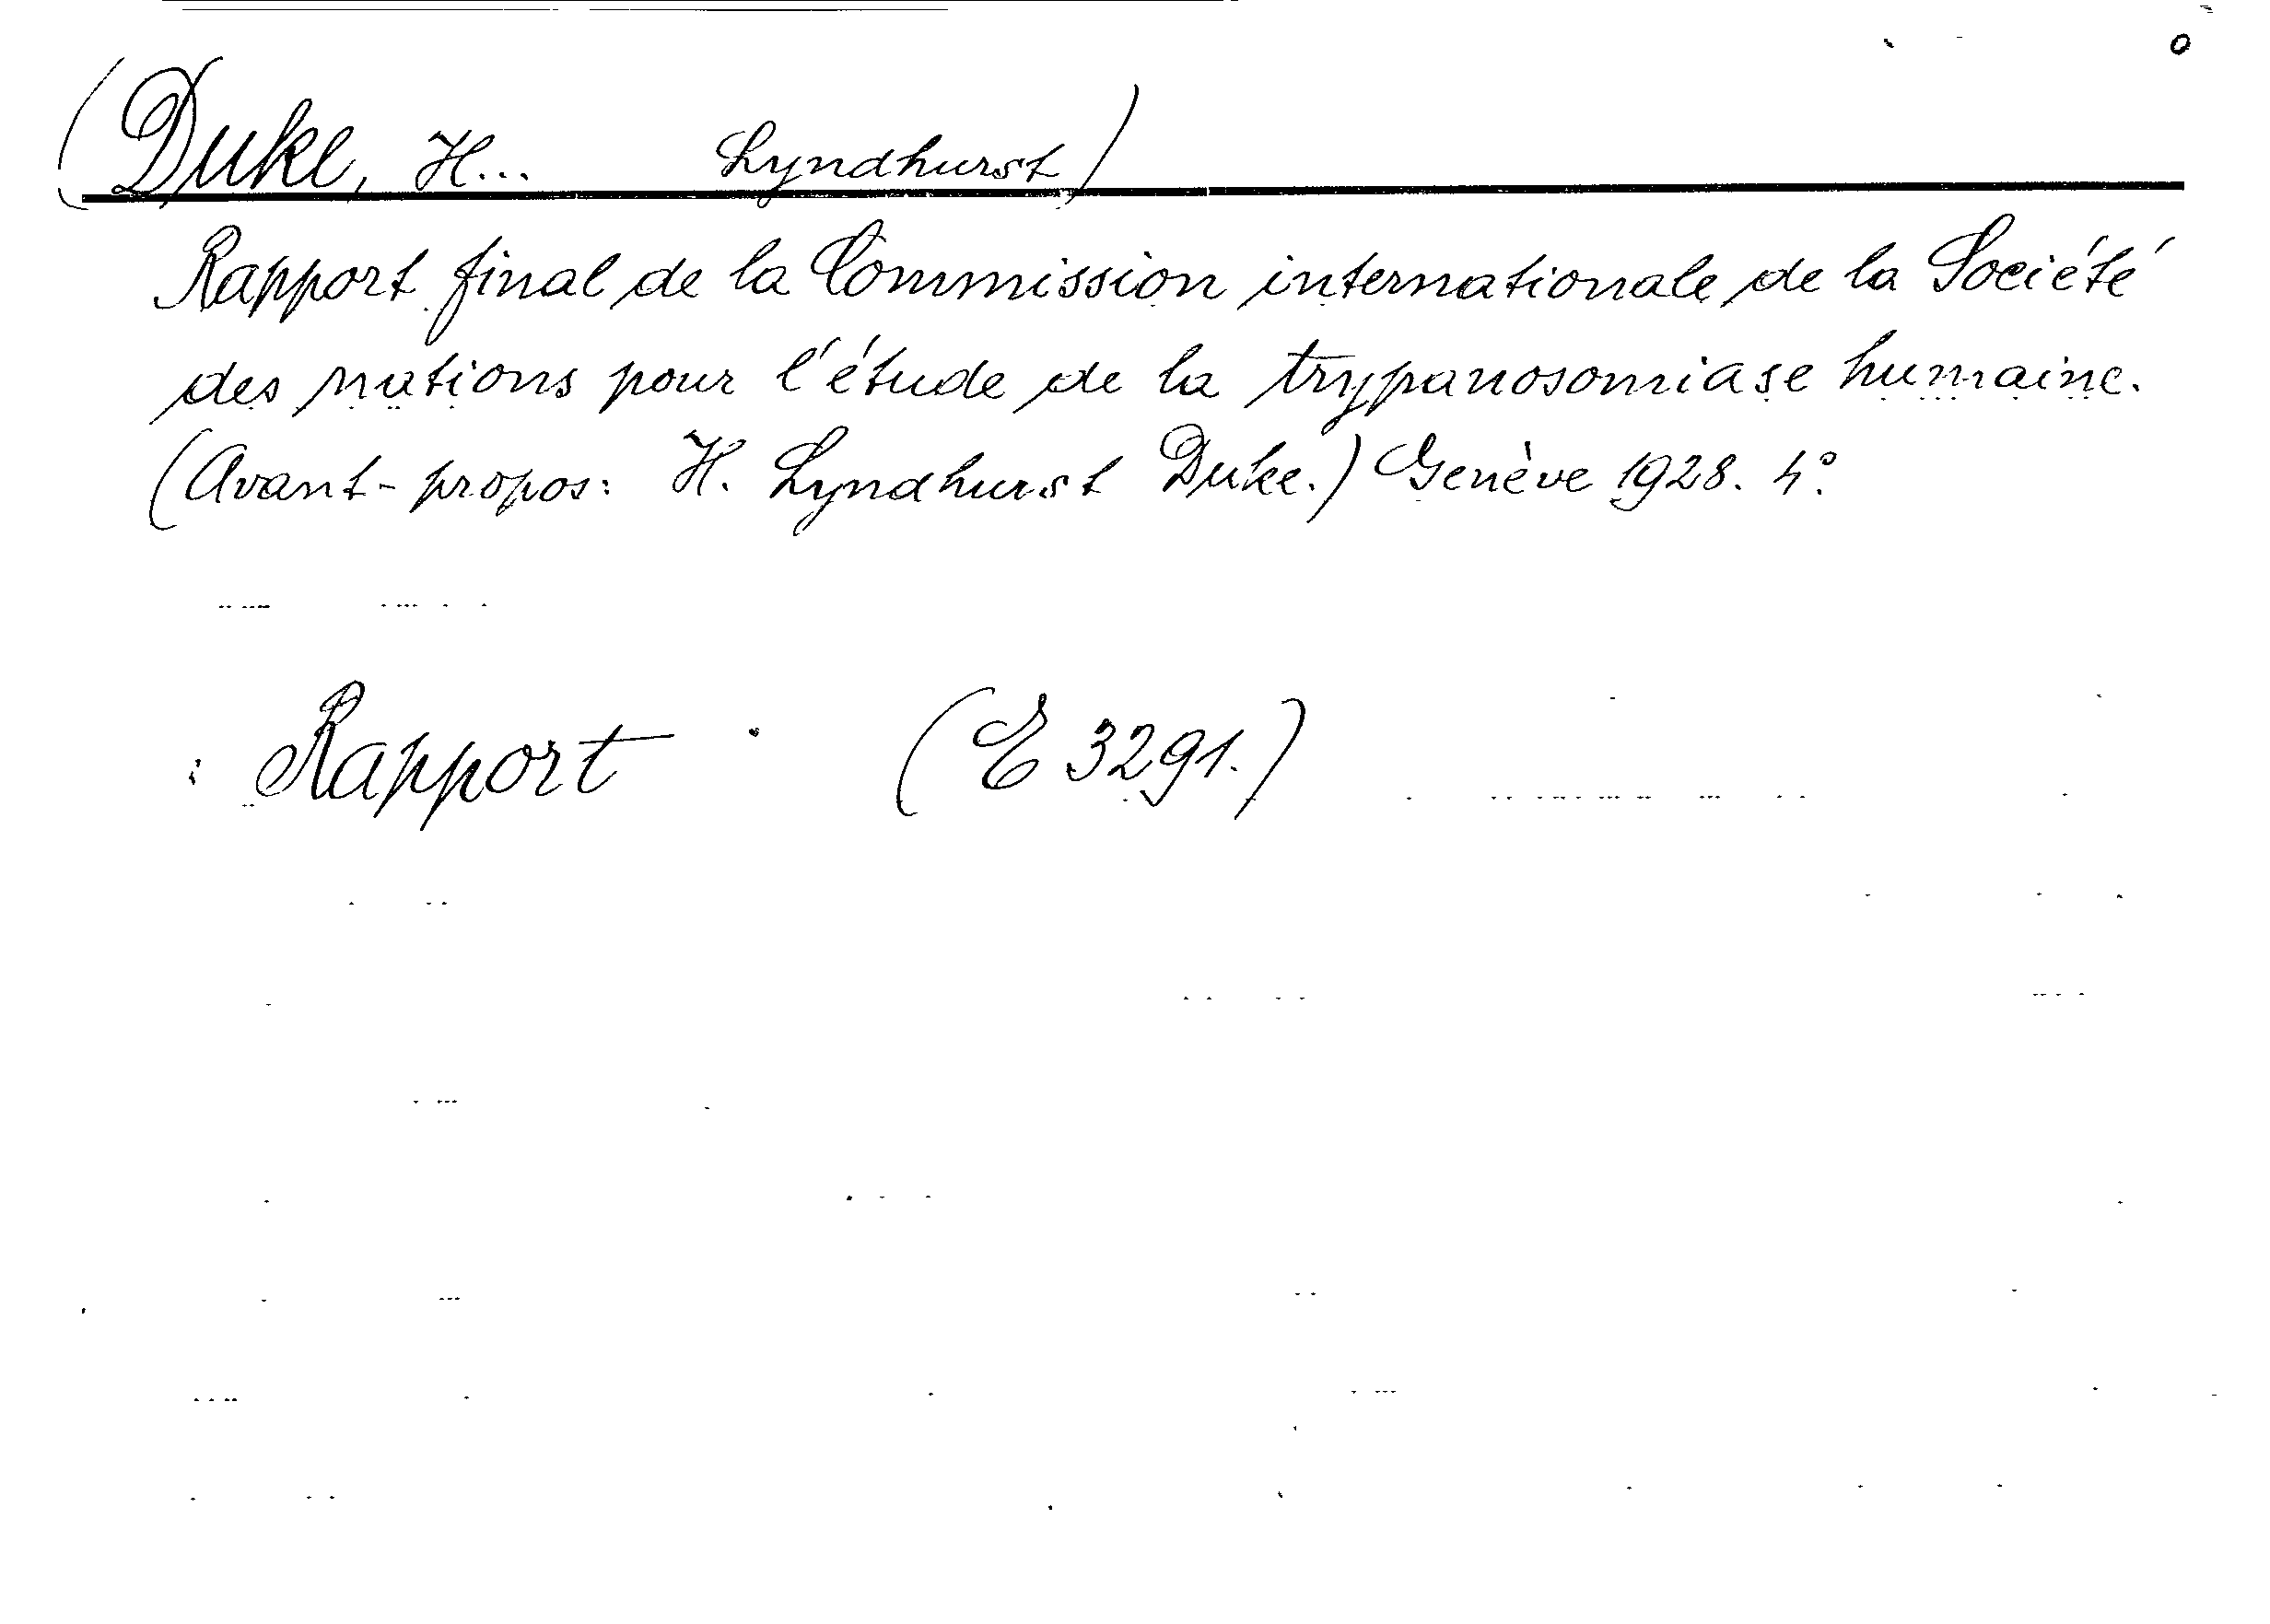 (Duke, H... Lyndhurst)
Rapport final de la Commission internationale de la Société
des nations pour l'étude de la trypanosomiase humaine.
(Avant-propos: H. Lyndhurst Duke.) Genève 1928. 4°.
Rapport (E 3291.)